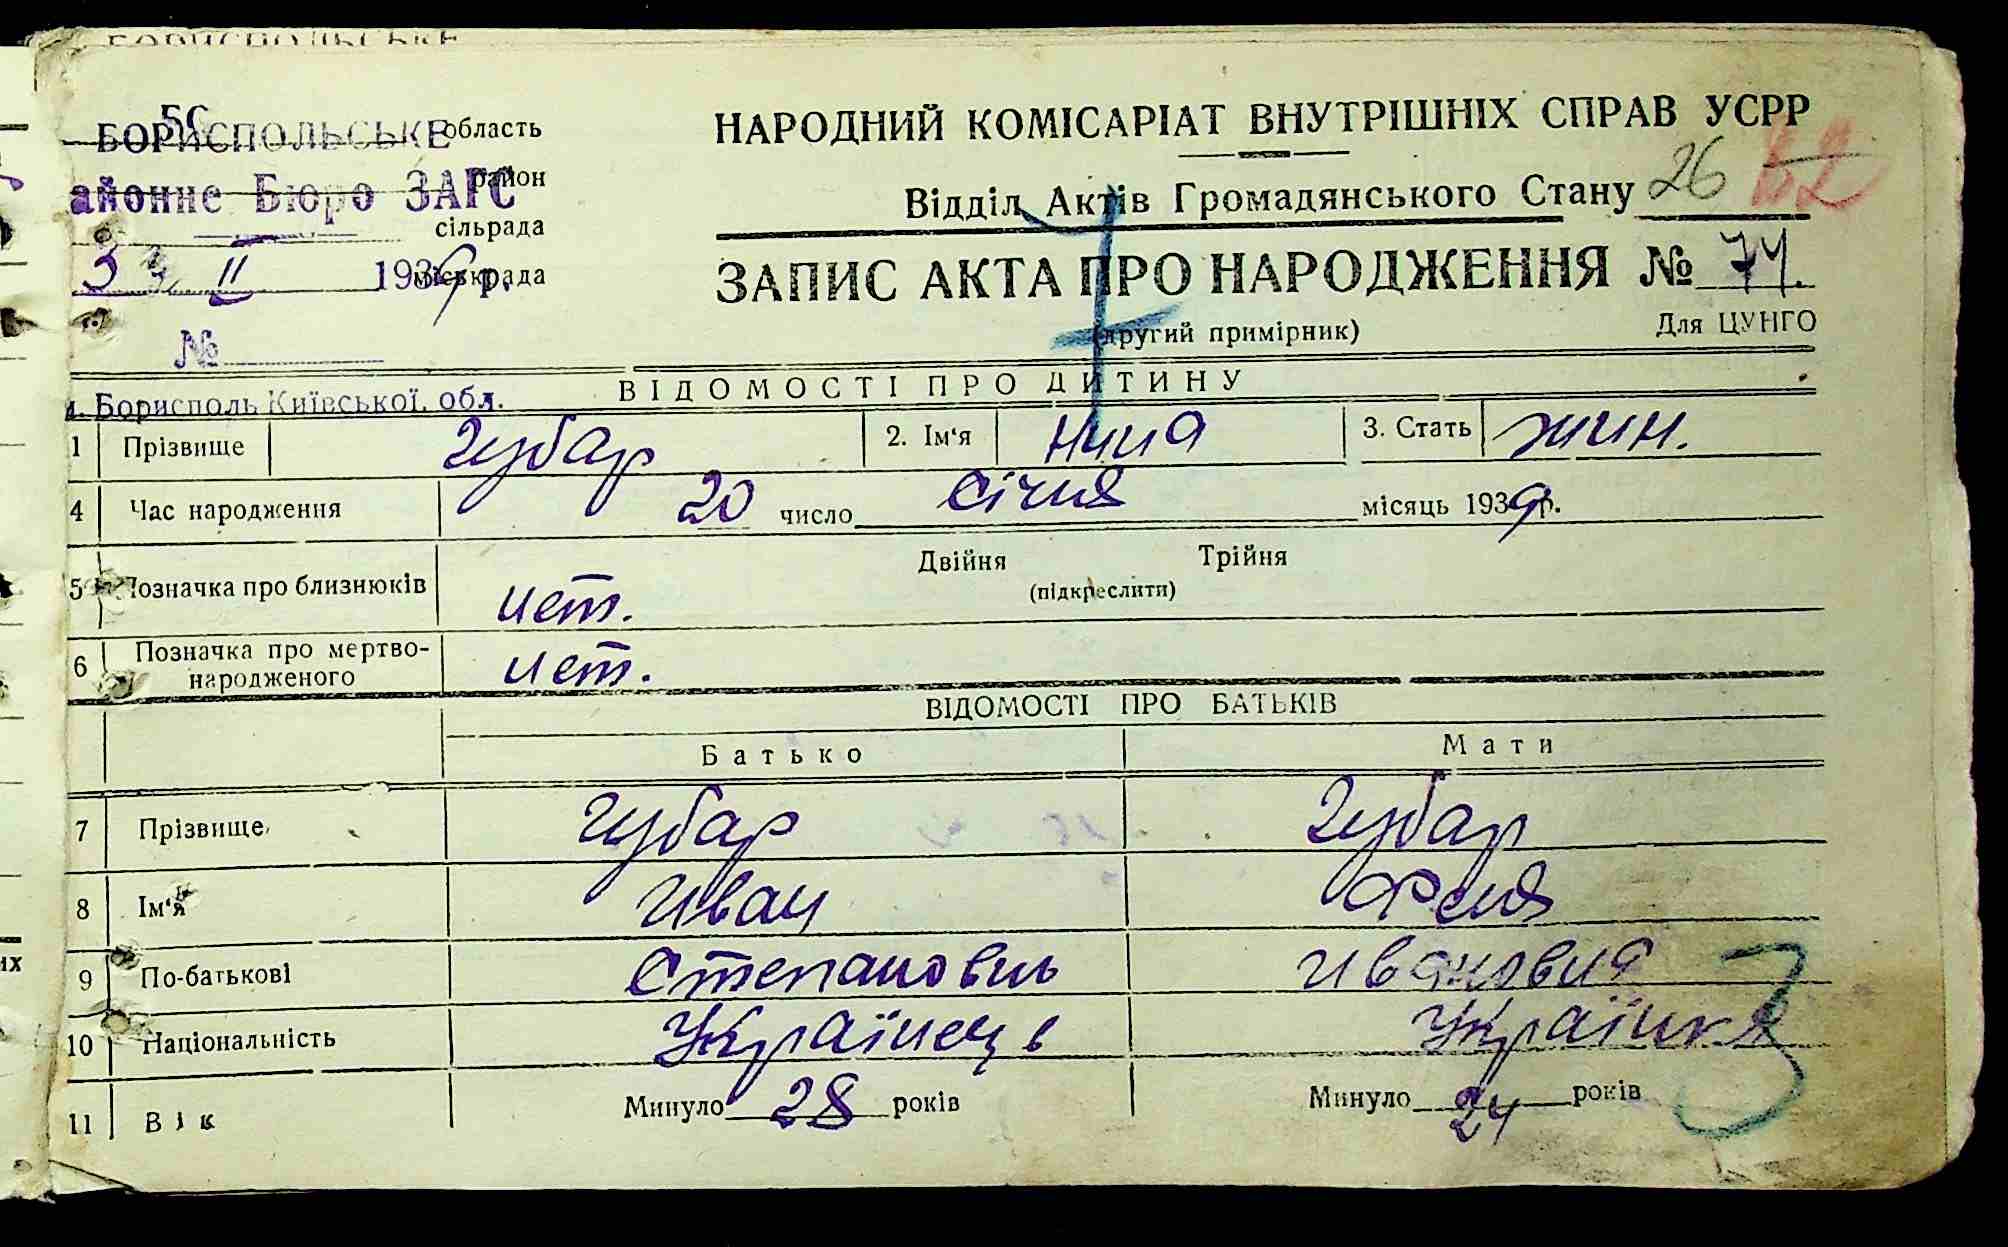 БОРИСПОЛЬСЬКЕ область
НАРОДНИЙ КОМІСАРІАТ ВНУТРІШНІХ СПРАВ УСРР
айонне Бюро ЗАГС район
Відділ Актів Громадянського Стану 26
сільрада
3 II 1939 р. міськрада
ЗАПИС АКТА ПРО НАРОДЖЕННЯ № 74.
(другий примірник) Для ЦУНГО
№
м. Борисполь Київської обл.
ВІДОМОСТІ ПРО ДИТИНУ
1 Прізвище Губар 2. Ім'я Нина 3. Стать жин.
4 Час народження 20 число Січня місяць 1939 р.
5 Позначка про близнюків нет. Двійня Трійня
(підкреслити)
6 Позначка про мертво-
народженого нет.
ВІДОМОСТІ ПРО БАТЬКІВ
Батько Мати
7 Прізвище Губар Губар
8 Ім'я Иван Феня
9 По-батькові Степановиь Ивановня
10 Національність Українець Українка
11 Вік Минуло 28 років Минуло 24 років
3
их